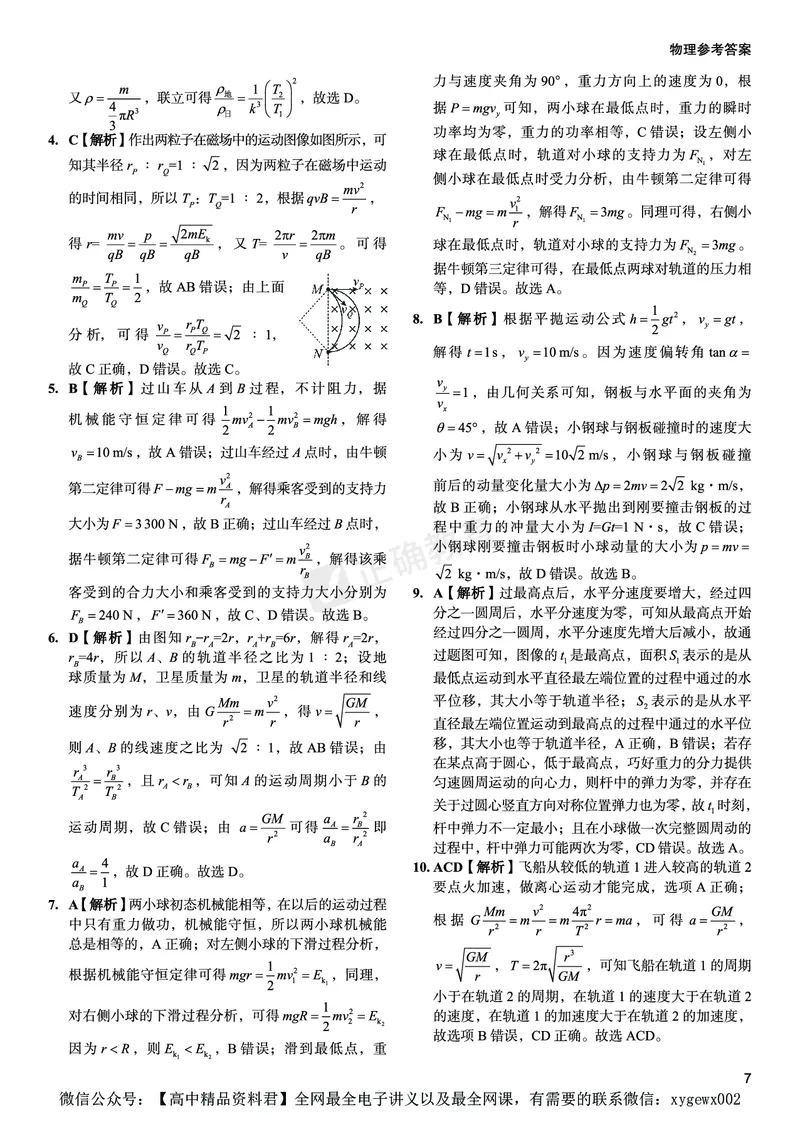 物理参考答案
又ρ= m/(4/3 πR³) ，联立可得 ρ地/ρ日 = 1/k³ (T₂/T₁)² ，故选 D。
4. C【解析】作出两粒子在磁场中的运动图像如图所示，可
知其半径 r_P ∶ r_Q=1 ∶ √2，因为两粒子在磁场中运动
的时间相同，所以 T_P∶T_Q=1 ∶ 2，根据qvB= mv²/r ，
得 r= mv/qB = p/qB = √(2mE_k)/qB ，又 T= 2πr/v = 2πm/qB 。可得
m_P/m_Q = T_P/T_Q = 1/2 ，故 AB 错误；由上面
分析，可得 v_P/v_Q = r_P T_Q/r_Q T_P = √2 ∶ 1，
故 C 正确，D 错误。故选 C。
M v_P
v_Q
N
5. B【解析】过山车从 A 到 B 过程，不计阻力，据
机械能守恒定律可得 1/2 mv_A² − 1/2 mv_B² = mgh，解得
v_B =10 m/s，故 A 错误；过山车经过 A 点时，由牛顿
第二定律可得 F−mg = m v_A²/r_A ，解得乘客受到的支持力
大小为 F =3 300 N，故 B 正确；过山车经过 B 点时，
据牛顿第二定律可得 F_B = mg−F′= m v_B²/r_B ，解得该乘
客受到的合力大小和乘客受到的支持力大小分别为
F_B =240 N，F′=360 N，故 C、D 错误。故选 B。
6. D【解析】由图知 r_B−r_A=2r，r_A+r_B=6r，解得 r_A=2r，
r_B=4r，所以 A、B 的轨道半径之比为 1 ∶ 2；设地
球质量为 M，卫星质量为 m，卫星的轨道半径和线
速度分别为 r、v，由 G Mm/r² = m v²/r ，得 v= √(GM/r) ，
则 A、B 的线速度之比为 √2 ∶ 1，故 AB 错误；由
r_A³/T_A² = r_B³/T_B² ，且 r_A < r_B ，可知 A 的运动周期小于 B 的
运动周期，故 C 错误；由 a= GM/r² 可得 a_A/a_B = r_B²/r_A² 即
a_A/a_B = 4/1 ，故 D 正确。故选 D。
7. A【解析】两小球初态机械能相等，在以后的运动过程
中只有重力做功，机械能守恒，所以两小球机械能
总是相等的，A 正确；对左侧小球的下滑过程分析，
根据机械能守恒定律可得mgr= 1/2 mv₁² = E_k₁ ，同理，
对右侧小球的下滑过程分析，可得mgR= 1/2 mv₂² = E_k₂
因为 r < R，则 E_k₁ < E_k₂ ，B 错误；滑到最低点，重
力与速度夹角为 90°，重力方向上的速度为 0，根
据 P=mgv_y 可知，两小球在最低点时，重力的瞬时
功率均为零，重力的功率相等，C 错误；设左侧小
球在最低点时，轨道对小球的支持力为 F_N₁ ，对左
侧小球在最低点时受力分析，由牛顿第二定律可得
F_N₁ −mg = m v₁²/r ，解得F_N₁ =3mg。同理可得，右侧小
球在最低点时，轨道对小球的支持力为F_N₂ =3mg。
据牛顿第三定律可得，在最低点两球对轨道的压力相
等，D 错误。故选 A。
8. B【解析】根据平抛运动公式 h= 1/2 gt²，v_y = gt，
解得 t =1 s，v_y =10 m/s。因为速度偏转角 tan α =
v_y/v_x =1，由几何关系可知，钢板与水平面的夹角为
θ =45°，故 A 错误；小钢球与钢板碰撞时的速度大
小为 v= √(v_x²+v_y²) =10√2 m/s，小钢球与钢板碰撞
前后的动量变化量大小为 Δp=2mv=2√2 kg·m/s，
故 B 正确；小钢球从水平抛出到刚要撞击钢板的过
程中重力的冲量大小为 I=Gt=1 N·s，故 C 错误；
小钢球刚要撞击钢板时小球动量的大小为 p =mv=
√2 kg·m/s，故 D 错误。故选 B。
9. A【解析】过最高点后，水平分速度要增大，经过四
分之一圆周后，水平分速度为零，可知从最高点开始
经过四分之一圆周，水平分速度先增大后减小，故通
过题图可知，图像的 t₁ 是最高点，面积 S₁ 表示的是从
最低点运动到水平直径最左端位置的过程中通过的水
平位移，其大小等于轨道半径；S₂ 表示的是从水平
直径最左端位置运动到最高点的过程中通过的水平位
移，其大小也等于轨道半径，A 正确，B 错误；若存
在某点高于圆心，低于最高点，巧好重力的分力提供
匀速圆周运动的向心力，则杆中的弹力为零，并存在
关于过圆心竖直方向对称位置弹力也为零，故 t₁ 时刻，
杆中弹力不一定最小；且在小球做一次完整圆周动的
过程中，杆中弹力可能两次为零，CD 错误。故选 A。
10. ACD【解析】飞船从较低的轨道 1 进入较高的轨道 2
要点火加速，做离心运动才能完成，选项 A 正确；
根据 G Mm/r² = m v²/r = m 4π²/T² r = ma，可得 a= GM/r² ，
v= √(GM/r) ，T = 2π √(r³/GM) ，可知飞船在轨道 1 的周期
小于在轨道 2 的周期，在轨道 1 的速度大于在轨道 2
的速度，在轨道 1 的加速度大于在轨道 2 的加速度，
故选项 B 错误，CD 正确。故选 ACD。
7
微信公众号：【高中精品资料君】全网最全电子讲义以及最全网课，有需要的联系微信：xygewx002